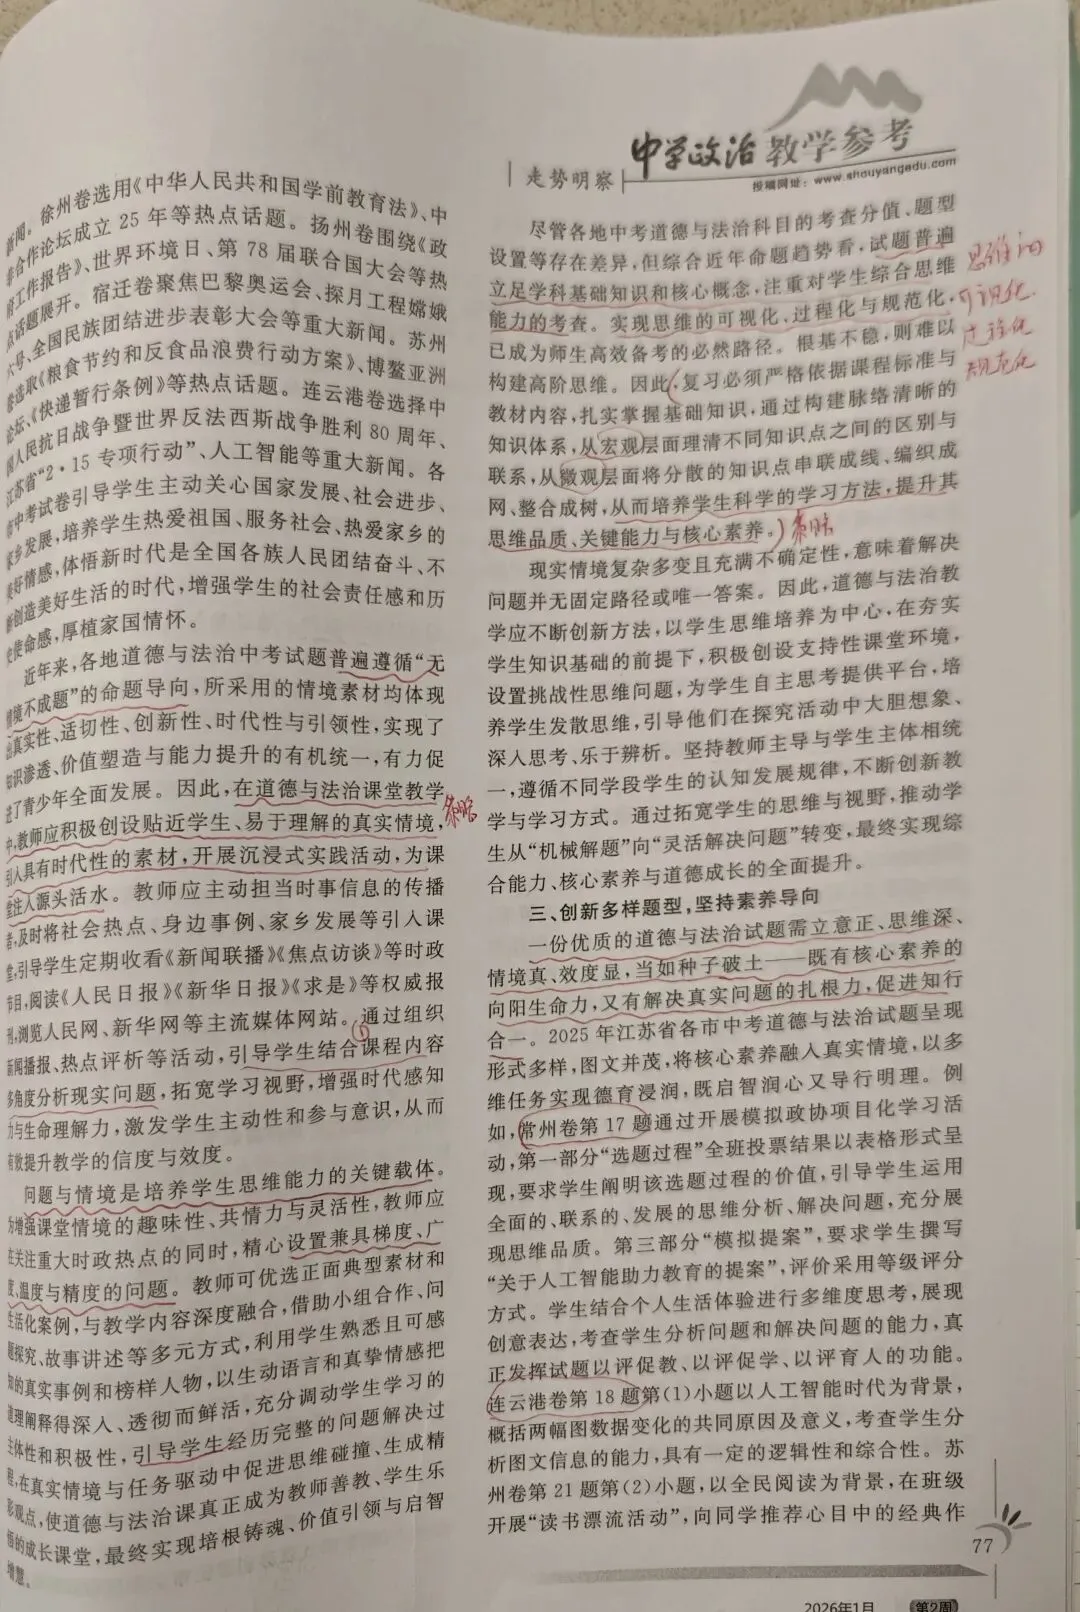 走势明察
中学政治教学参考
投稿网址：www.shouyangedu.com
新闻。徐州卷选用《中华人民共和国学前教育法》、中
合作论坛成立 25 年等热点话题。扬州卷围绕《政
府工作报告》、世界环境日、第 78 届联合国大会等热
点话题展开。宿迁卷聚焦巴黎奥运会、探月工程嫦娥
六号、全国民族团结进步表彰大会等重大新闻。苏州
卷选取《粮食节约和反食品浪费行动方案》、博鳌亚洲
论坛、《快递暂行条例》等热点话题。连云港卷选择中
国人民抗日战争暨世界反法西斯战争胜利 80 周年、
江苏省“2·15 专项行动”、人工智能等重大新闻。各
市中考试卷引导学生主动关心国家发展、社会进步、
家乡发展，培养学生热爱祖国、服务社会、热爱家乡的
美好情感，体悟新时代是全国各族人民团结奋斗、不
断创造美好生活的时代，增强学生的社会责任感和历
史使命感，厚植家国情怀。
近年来，各地道德与法治中考试题普遍遵循“无
情境不成题”的命题导向，所采用的情境素材均体现
出真实性、适切性、创新性、时代性与引领性，实现了
知识渗透、价值塑造与能力提升的有机统一，有力促
进了青少年全面发展。因此，在道德与法治课堂教学
中，教师应积极创设贴近学生、易于理解的真实情境，
引入具有时代性的素材，开展沉浸式实践活动，为课
堂注入源头活水。教师应主动担当时事信息的传播
者，及时将社会热点、身边事例、家乡发展等引入课
堂，引导学生定期收看《新闻联播》《焦点访谈》等时政
节目，阅读《人民日报》《新华日报》《求是》等权威报
刊，浏览人民网、新华网等主流媒体网站。通过组织
新闻播报、热点评析等活动，引导学生结合课程内容
多角度分析现实问题，拓宽学习视野，增强时代感知
力与生命理解力，激发学生主动性和参与意识，从而
有效提升教学的信度与效度。
问题与情境是培养学生思维能力的关键载体。
为增强课堂情境的趣味性、共情力与灵活性，教师应
在关注重大时政热点的同时，精心设置兼具梯度、广
度、温度与精度的问题。教师可优选正面典型素材和
生活化案例，与教学内容深度融合，借助小组合作、问
题探究、故事讲述等多元方式，利用学生熟悉且可感
知的真实事例和榜样人物，以生动语言和真挚情感把
道理阐释得深入、透彻而鲜活，充分调动学生学习的
主体性和积极性，引导学生经历完整的问题解决过
程，在真实情境与任务驱动中促进思维碰撞、生成精
彩观点，使道德与法治课真正成为教师善教、学生乐
悟的成长课堂，最终实现培根铸魂、价值引领与启智
增慧。
尽管各地中考道德与法治科目的考查分值、题型
设置等存在差异，但综合近年命题趋势看，试题普遍
立足学科基础知识和核心概念，注重对学生综合思维
能力的考查。实现思维的可视化、过程化与规范化，
已成为师生高效备考的必然路径。根基不稳，则难以
构建高阶思维。因此，复习必须严格依据课程标准与
教材内容，扎实掌握基础知识，通过构建脉络清晰的
知识体系，从宏观层面理清不同知识点之间的区别与
联系，从微观层面将分散的知识点串联成线、编织成
网、整合成树，从而培养学生科学的学习方法，提升其
思维品质、关键能力与核心素养。
现实情境复杂多变且充满不确定性，意味着解决
问题并无固定路径或唯一答案。因此，道德与法治教
学应不断创新方法，以学生思维培养为中心，在夯实
学生知识基础的前提下，积极创设支持性课堂环境，
设置挑战性思维问题，为学生自主思考提供平台，培
养学生发散思维，引导他们在探究活动中大胆想象、
深入思考、乐于辨析。坚持教师主导与学生主体相统
一，遵循不同学段学生的认知发展规律，不断创新教
学与学习方式。通过拓宽学生的思维与视野，推动学
生从“机械解题”向“灵活解决问题”转变，最终实现综
合能力、核心素养与道德成长的全面提升。
三、创新多样题型，坚持素养导向
一份优质的道德与法治试题需立意正、思维深、
情境真、效度显，当如种子破土——既有核心素养的
向阳生命力，又有解决真实问题的扎根力，促进知行
合一。2025 年江苏省各市中考道德与法治试题呈现
形式多样，图文并茂，将核心素养融入真实情境，以多
维任务实现德育浸润，既启智润心又导行明理。例
如，常州卷第 17 题通过开展模拟政协项目化学习活
动，第一部分“选题过程”全班投票结果以表格形式呈
现，要求学生阐明该选题过程的价值，引导学生运用
全面的、联系的、发展的思维分析、解决问题，充分展
现思维品质。第三部分“模拟提案”，要求学生撰写
“关于人工智能助力教育的提案”，评价采用等级评分
方式。学生结合个人生活体验进行多维度思考，展现
创意表达，考查学生分析问题和解决问题的能力，真
正发挥试题以评促教、以评促学、以评育人的功能。
连云港卷第 18 题第（1）小题以人工智能时代为背景，
概括两幅图数据变化的共同原因及意义，考查学生分
析图文信息的能力，具有一定的逻辑性和综合性。苏
州卷第 21 题第（2）小题，以全民阅读为背景，在班级
开展“读书漂流活动”，向同学推荐心目中的经典作
思维的
可视化
过程化
规范化
77
2026年1月 第2周